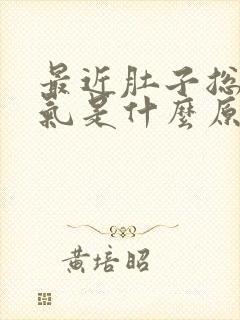 最近肚子总
氣是什麼原
黃培昭